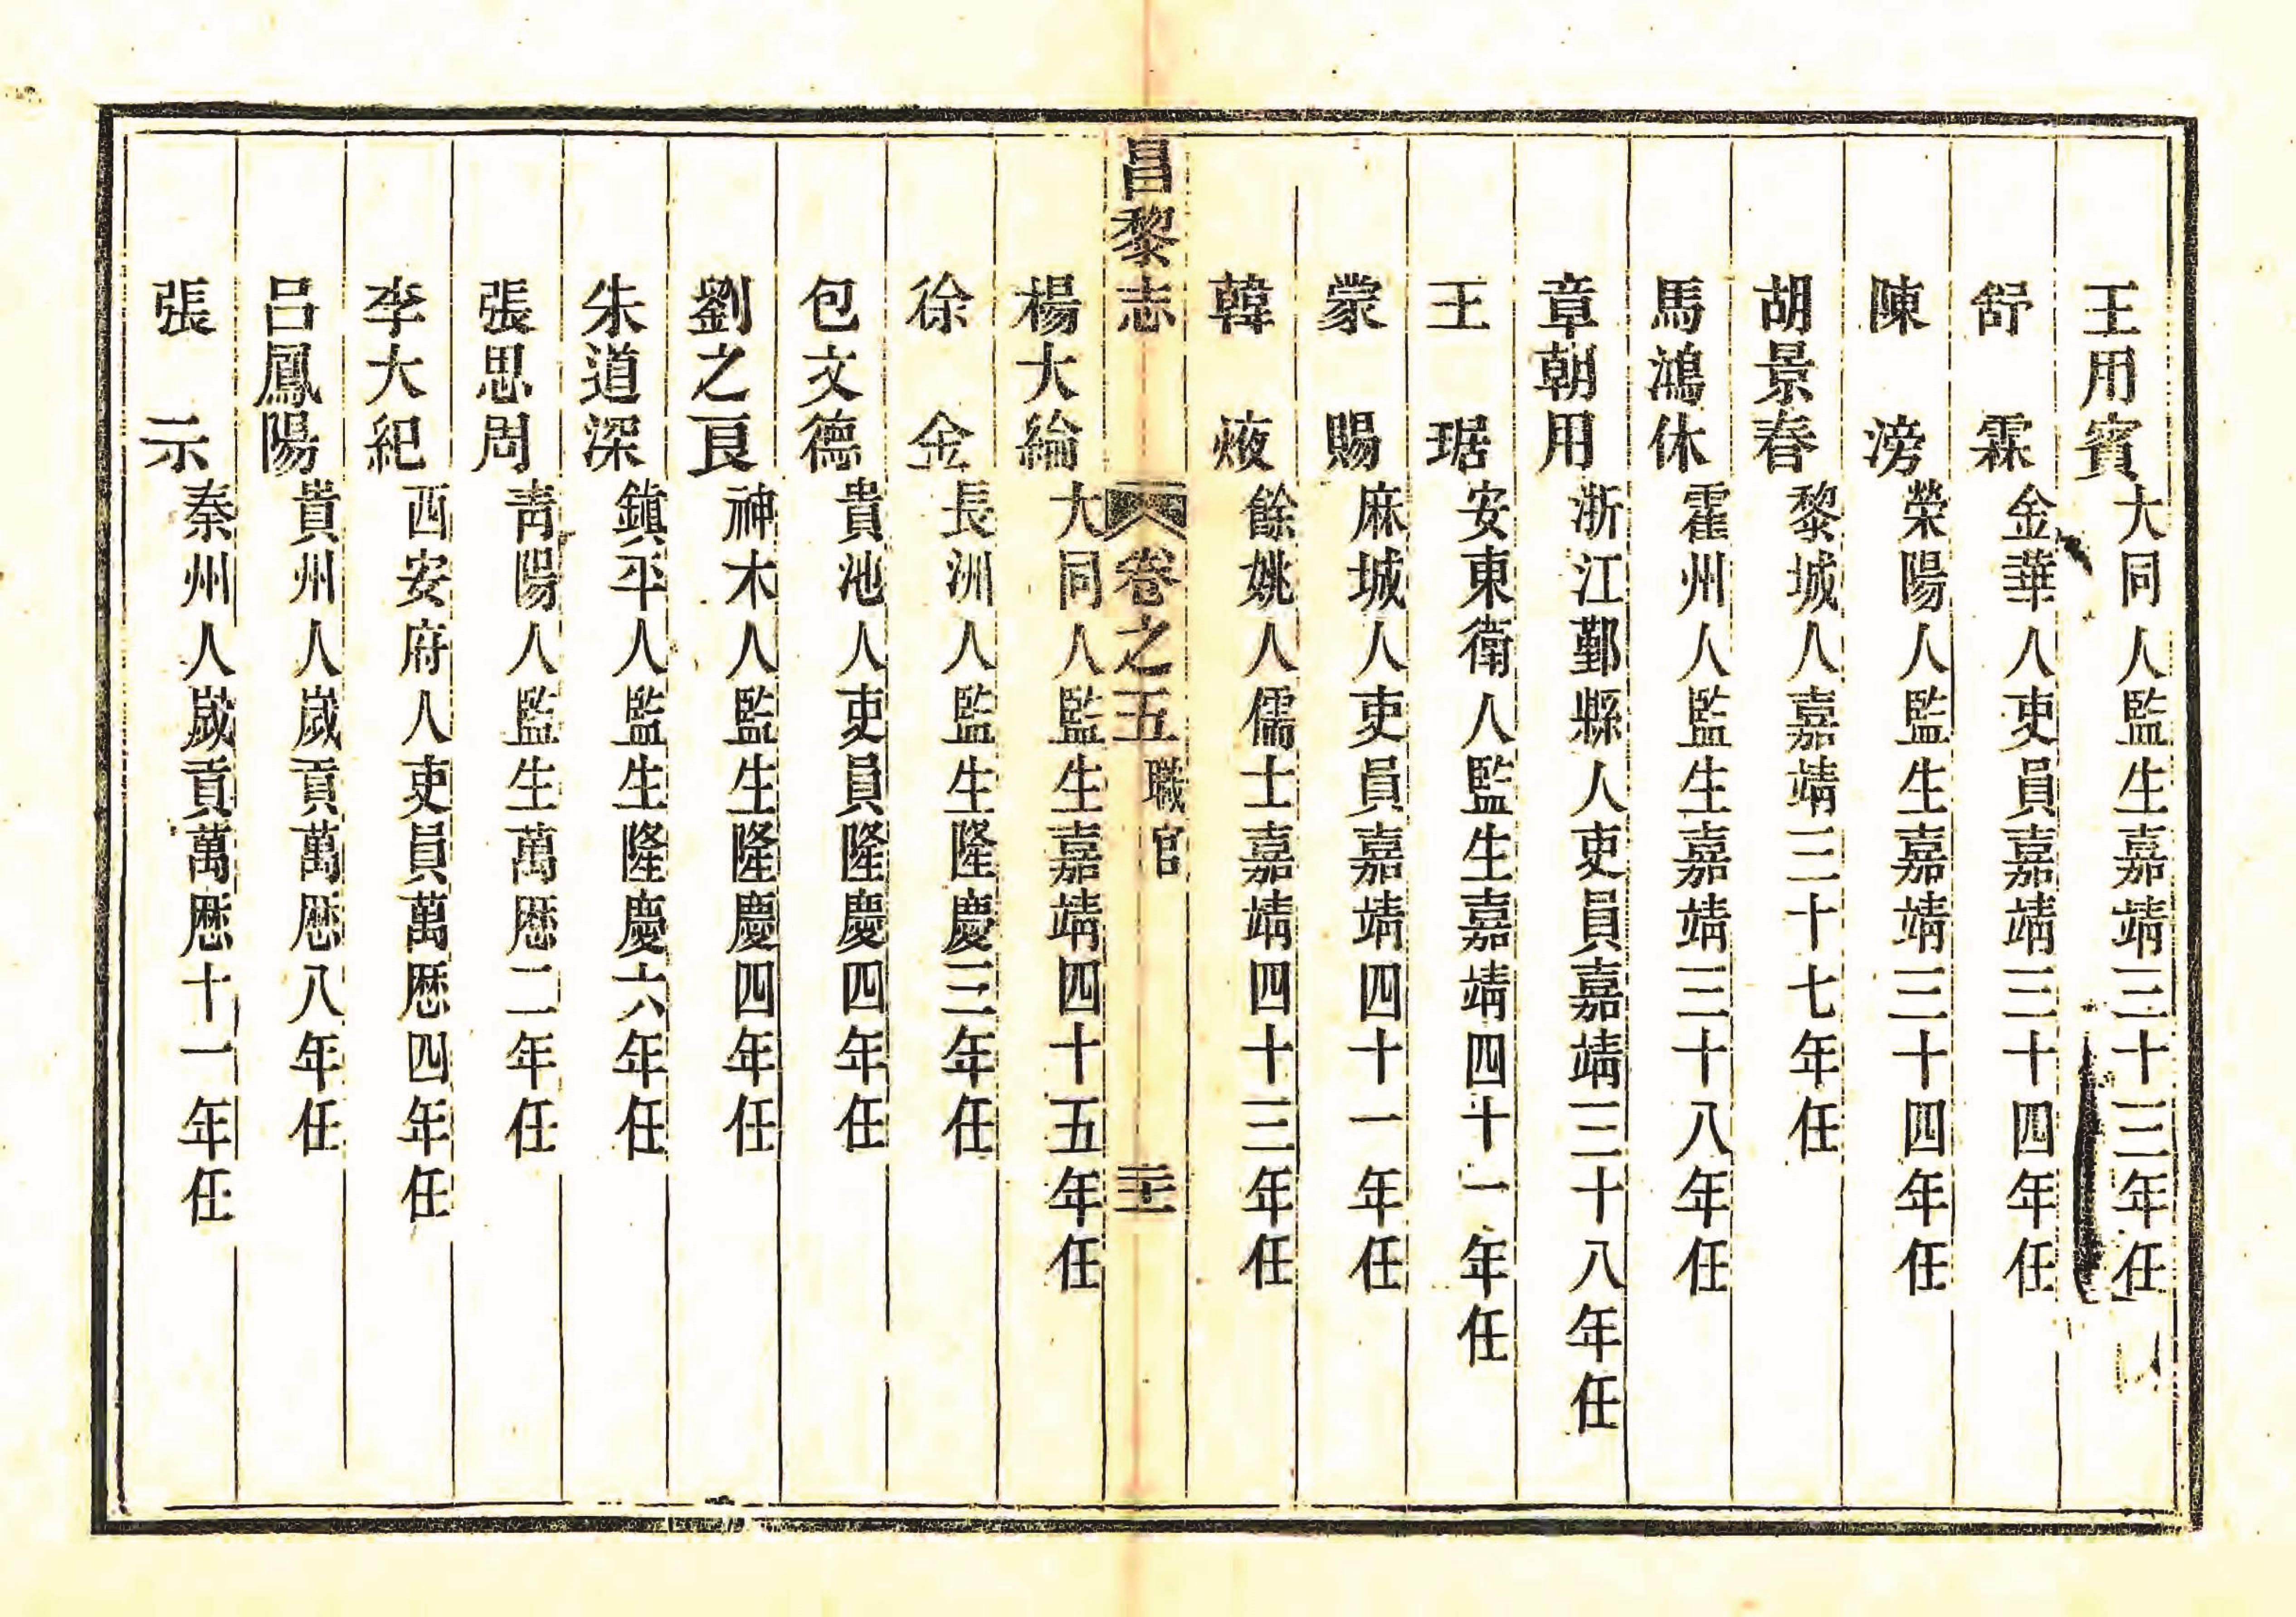 王用賓大同人監生嘉靖三十三年任
舒霖金華人吏員嘉靖三十四年任
陳滂榮陽人監生嘉靖三十四年任
胡景春黎城人嘉靖三十七年任
馬鴻休霍州人監生嘉靖三十八年任
章朝用浙江鄞縣人吏員嘉靖三十八年任
王琚安東衛人監生嘉靖四十一年任
蒙賜麻城人吏員嘉靖四十一年任
韓焲餘姚人儒士嘉靖四十三年任
昌黎志 卷之五 職官 二十二
楊大綸大同人監生嘉靖四十五年任
徐金長洲人監生隆慶三年任
包文德貴池人吏員隆慶四年任
劉之良神木人監生隆慶四年任
朱道深鎮平人監生隆慶六年任
張思周青陽人監生萬歷二年任
李大紀西安府人吏員萬歷四年任
呂鳳陽貴州人歲貢萬歷八年任
張示秦州人歲貢萬歷十一年任